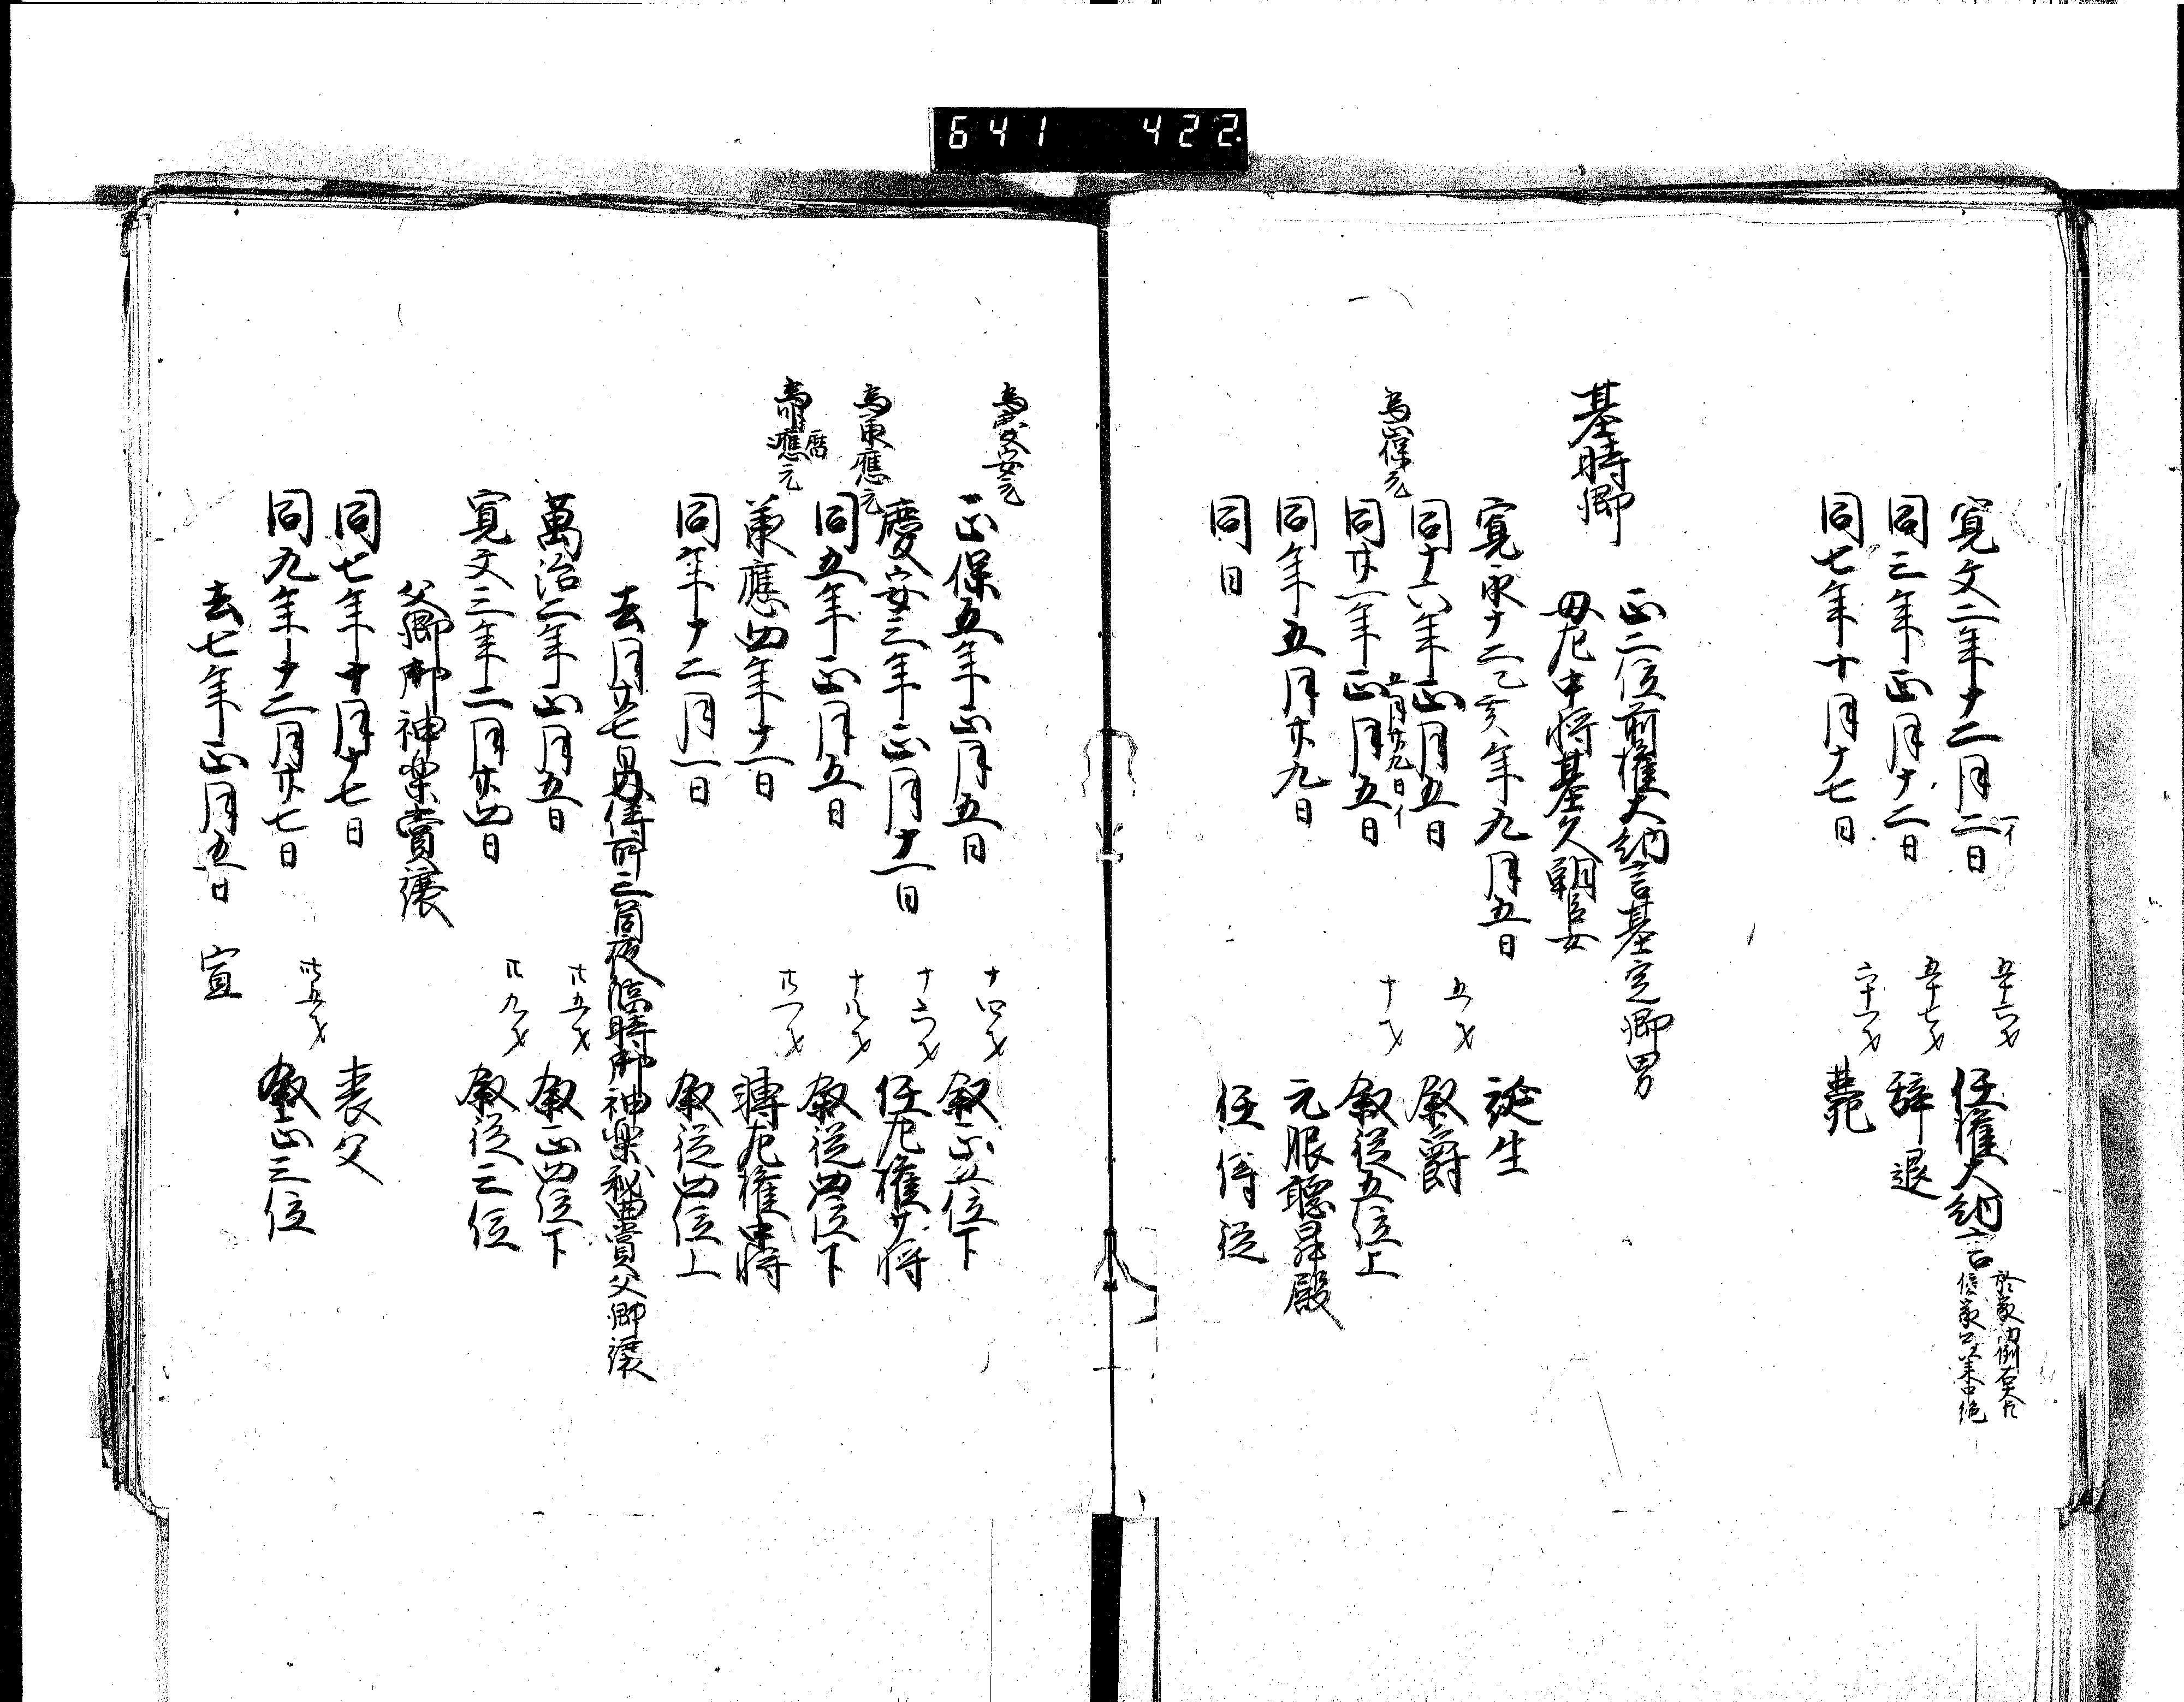 641 422
寛文二年十二月二日 一イ 五十六才 任権大納言
同三年正月十二日 五十七才 辞退
同七年十月十七日 六十一才 薨
基時卿
正二位前権大納言基定卿男
母左中将基久朝臣女
寛永十二乙亥年九月五日 誕生
同十六年正月五日 五才 叙爵
為正保元
同廿一年正月五日 正月廿九日イ 十才 叙従五位上
同年五月廿九日 元服聴昇殿
同日 任侍従
為慶安元
正保五年正月五日 十四才 叙正五位下
慶安三年正月十一日 十六才 任左権少将
為承應元
同五年正月五日 十八才 叙従四位下
為明應元 暦
承應四年十一日 廿一才 轉左権中将
同年十二月一日 叙従四位上
去月廿七日 内侍所三箇夜臨時御神楽秘曲賞父卿譲
萬治二年正月五日 廿五才 叙正四位下
寛文三年二月廿四日 廿九才 叙従三位
父卿御神楽賞譲
同七年十月十七日 喪父
同九年十二月廿七日 卅五才 叙正三位
去七年正月五日 宣